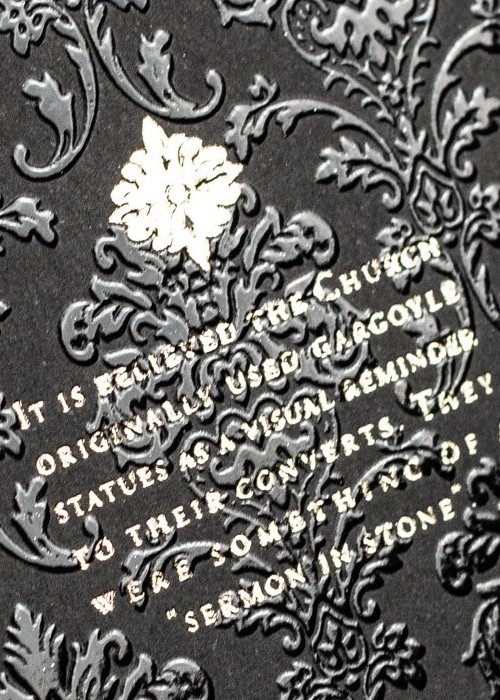 It is believed the Church
originally used gargoyle
statues as a visual reminder
to their converts. They
were something of
"sermon in stone".